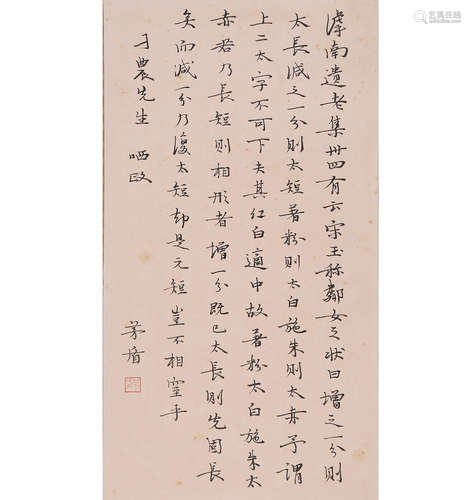 滹南遗老集卅四有云宋玉称邻女之状曰增之一分则
太长减之一分则太短著粉则太白施朱则太赤予谓
上二太字不可下夫其红白适中故著粉太白施朱太
赤若乃长短则相形者增一分既已太长则先固长
矣而减一分乃复太短却是元短岂不相窒乎
子农先生 哂政
茅盾